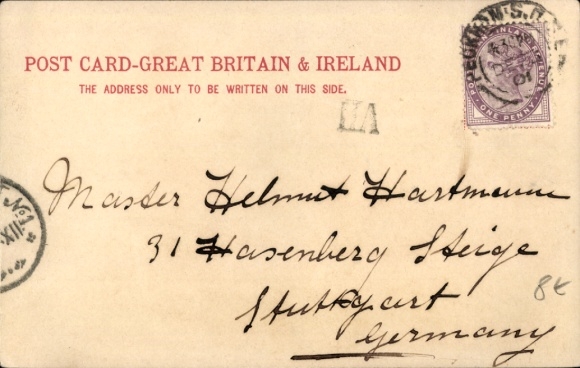 POST CARD-GREAT BRITAIN & IRELAND
THE ADDRESS ONLY TO BE WRITTEN ON THIS SIDE.
PECKHAM·S.O.
01
ONE PENNY
VII
No 1
XII
Master Helmut Hartmann
31 Hasenberg Steige
Stuttgart
Germany
8€